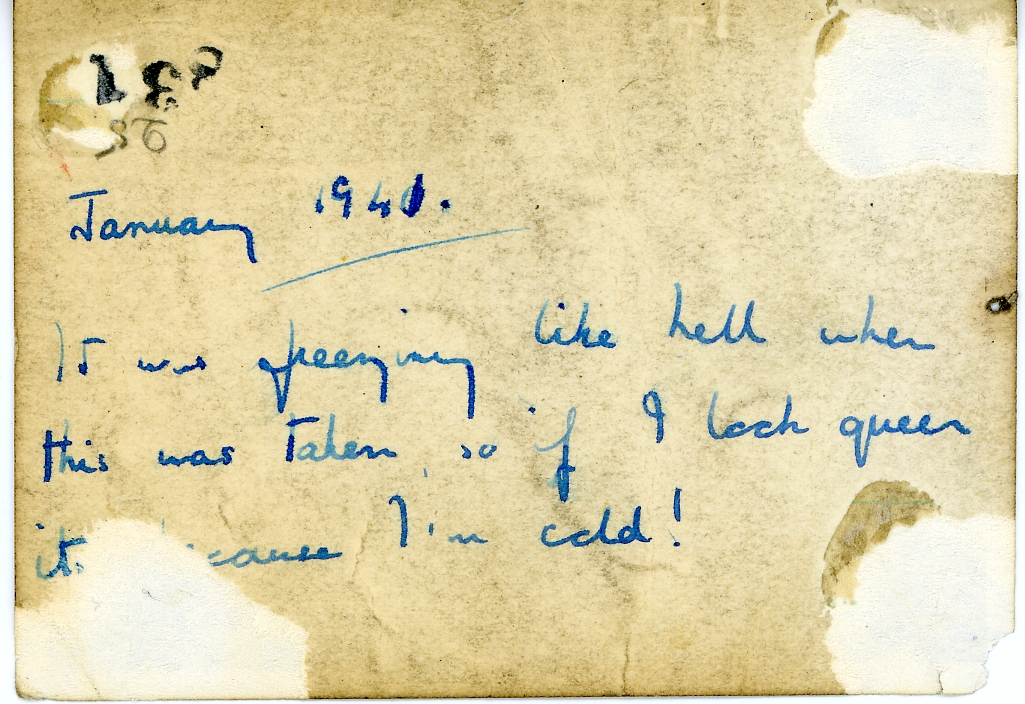 January 1941.
It was freezing like hell when
this was taken, so if I look queer
its because I'm cold!